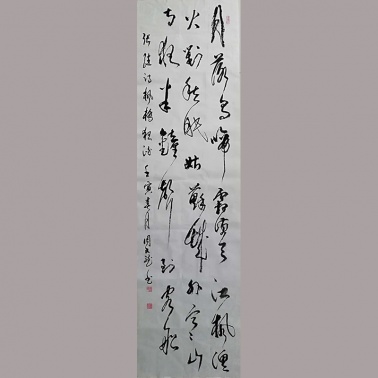 月落烏啼霜滿天江楓漁
火對愁眠姑蘇城外寒山
寺夜半鐘聲到客船
張繼詩楓橋夜泊 壬寅春月 周